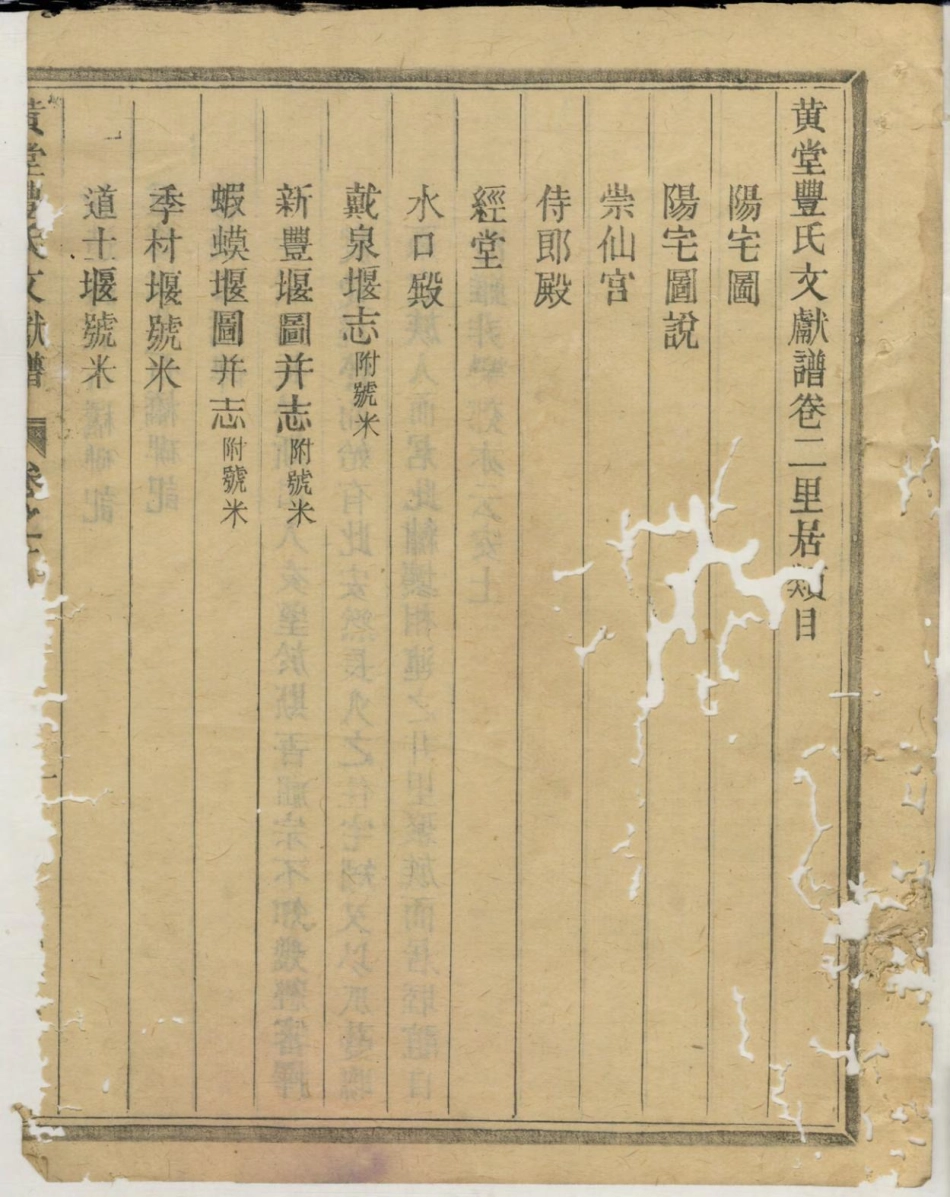 黄堂豐氏文獻譜卷二里居類目
陽宅圖
陽宅圖說
崇仙宮
侍郎殿
經堂
水口殿
戴泉堰志附號米
新豐堰圖并志附號米
蝦蟆堰圖并志附號米
季村堰號米
道士堰號米
黄堂豐氏文獻譜 卷之二